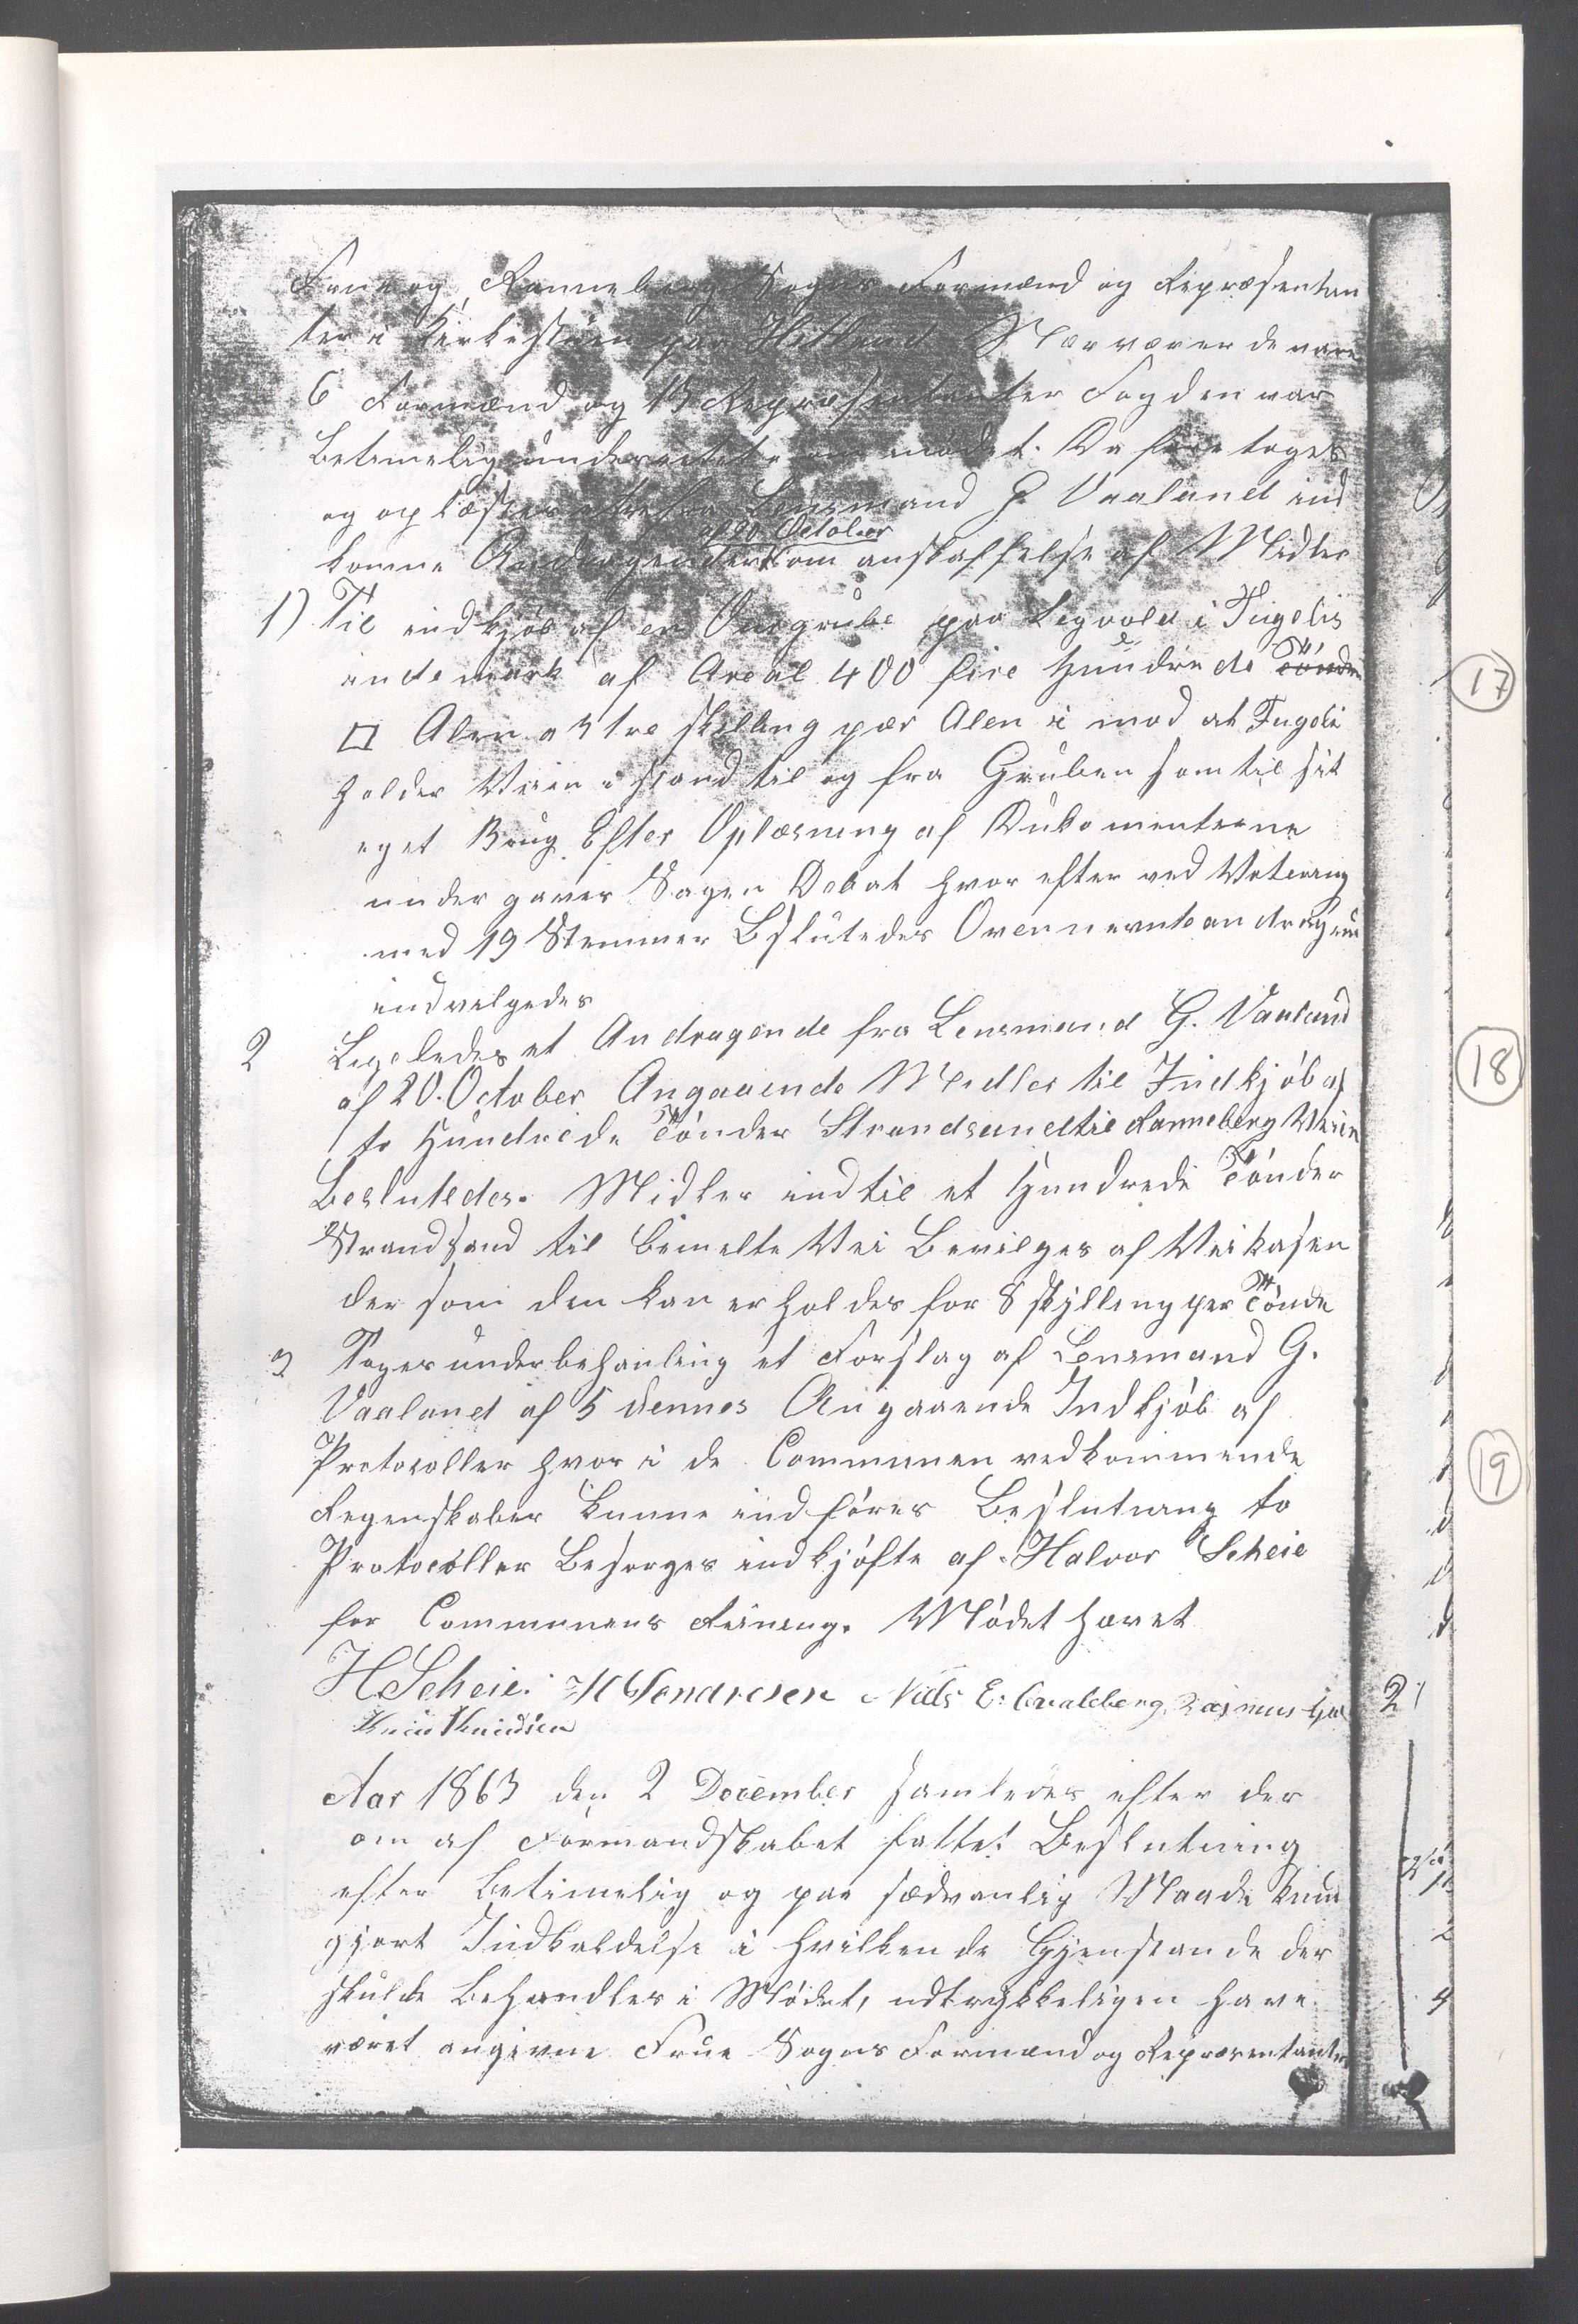 Frue og Ranneberg Sogns Formænd og Repræsentan
ter i Kirkestuen paa Hetland Nærværende vare
6 Formænd og 13 Repræsentanter Fogden var
betimelig underrettet om mødet. Da foretoges
og oplæstes Lensmand G Vaaland ind
af 20 October
komne Andragender om anskaffelse af Midler
1) Til indkjøb af en Uurgrube paa Legvold i Tugelis
indemark af Areal 400 fire Hundrede Tønde
□ Alen a 3 tre skilling per Alen i mod at Tugeli
holder Veien i stand til og fra Gruben som til sit
eget Brug Efter Oplæsning af Dukomenterne
under gaves Sagen Debat hvor efter ved Votering
med 19 Stemmer Bslutedes Ovennevnte andragende
indvelgedes
2 Legeledes et Andragende fra Lensmand G. Vaaland
af 20. October Angaaende Medler til Indkjøb af
to Hundrede Tønder Strandsand til Ranneberg Veien
Beslutedes. Midler indtil et Hundrede Tønder
Strandsand til bemelte Vei Bevilges af Veikasen
der som den kan erholdes for 8 skylling per Tønde
3 Toges under behanling et Forslag af Lensmand G.
Vaaland af 5 dennes Angaaende Indkjøb af
Protocoller hvor i de Communen vedkommende
Regenskaber kunne indføres Beslutning to
Protocoller Besørges indkjøfte af Halvor Scheie
for Communens Reining. Mødet hævet
H Scheie. Niels E. Qvaleberg. Rasmus
Knud Knudsen
Aar 1863 den 2 December samledes efter der
om af Formandskabet fattet Beslutning
efter betimelig og paa sædvanlig Maade kund
gjort Indkaldelse i hvilken de Gjenstande der
skulde Behandles i Mødet, udtrykkeligen have
været angivne Frue Sogns Formænd og Repræsentanter
17
18
19
2
2
4